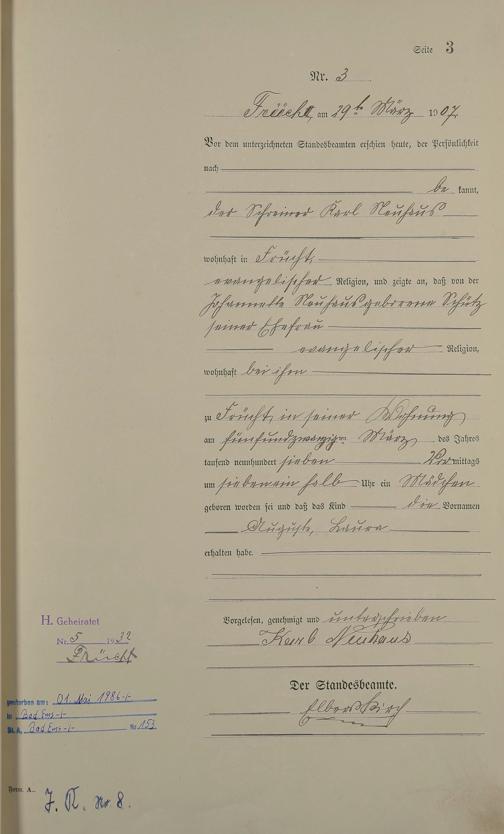 Seite 3
Nr. 3
Frücht, am 29ten März 1907
Vor dem unterzeichneten Standesbeamten erschien heute, der Persönlichkeit
nach
be kannt,
der Schreiner Karl Neuhaus
wohnhaft in Frücht
evangelischer Religion, und zeigte an, daß von der
Johannette Neuhaus geborene Schütz
seiner Ehefrau
evangelischer Religion,
wohnhaft bei ihm
zu Frücht in seiner Wohnung
am fünfundzwanzigsten März des Jahres
tausend neunhundert sieben Vormittags
um sieben ein halb Uhr ein Mädchen
geboren worden sei und daß das Kind die Vornamen
Auguste, Laura
erhalten habe.
Vorgelesen, genehmigt und unterschrieben
Karl Neuhaus
Der Standesbeamte.
Elbertskirch
H. Geheiratet
Nr. 5 1932
Frücht
gestorben am: 01. Mai 1986-/-
in Bad Ems-/-
St. A. Bad Ems-/- Nr 153
Form. A.
J. R. No 8.